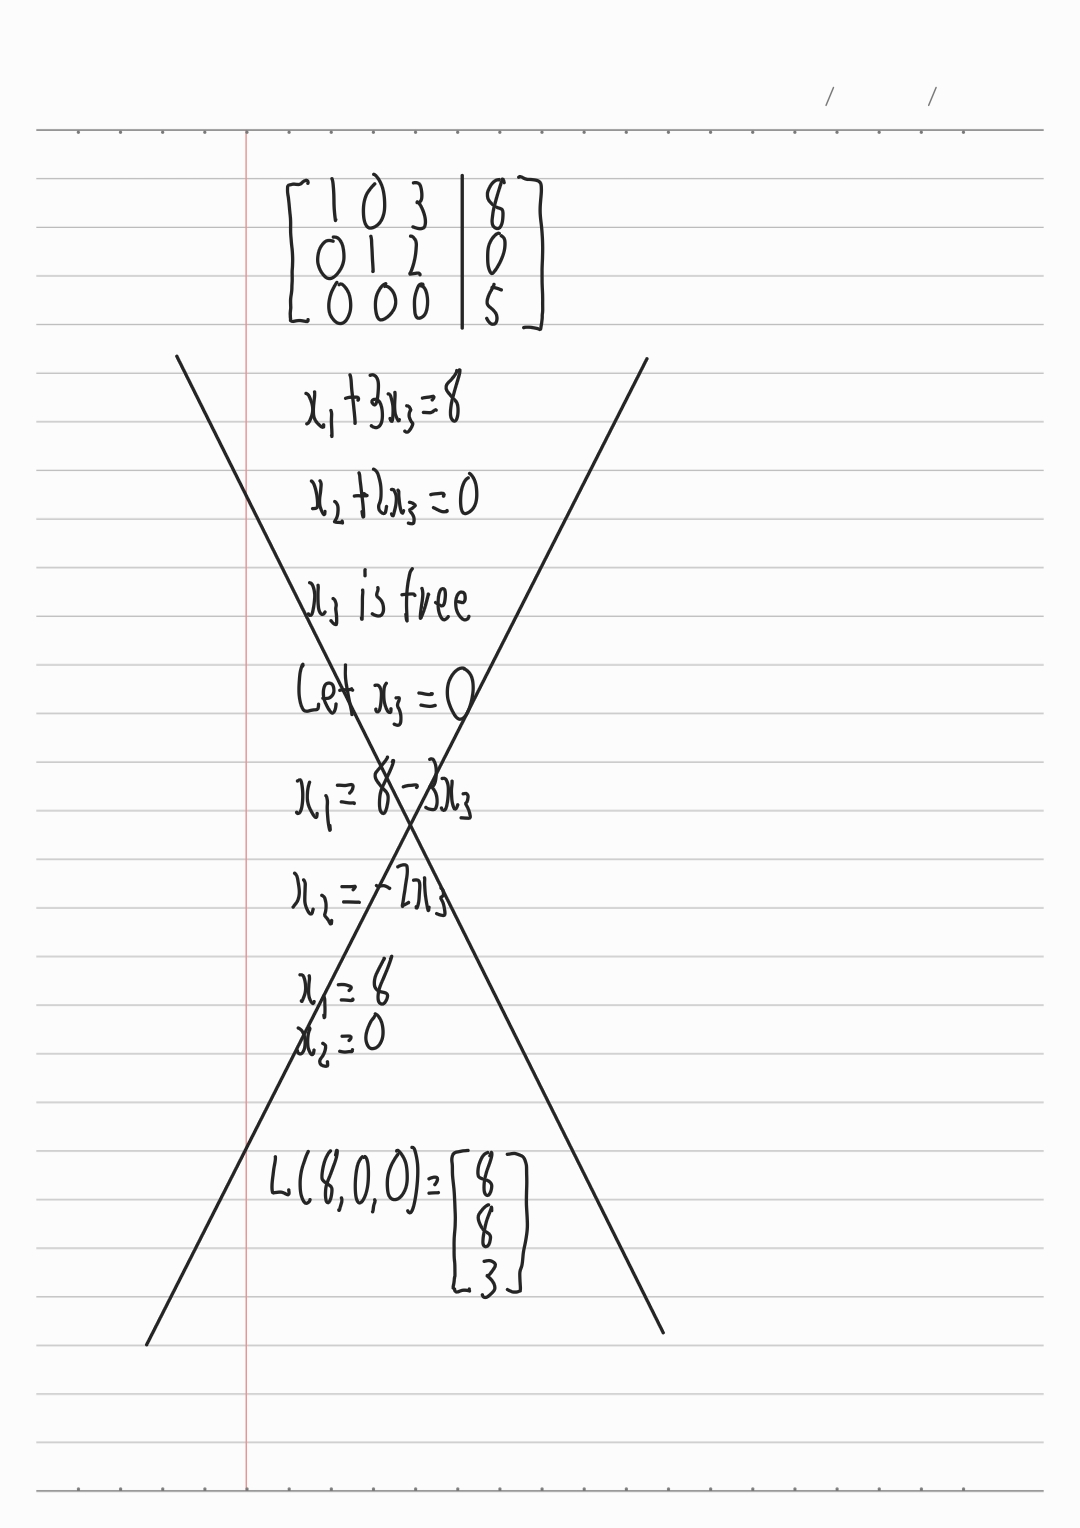 / /
[ 1 0 3 | 8 ]
[ 0 1 2 | 0 ]
[ 0 0 0 | 5 ]
x₁+3x₃=8
x₂+2x₃=0
x₃ is free
Let x₃=0
x₁=8-3x₃
x₂=-2x₃
x₁=8
x₂=0
L(8,0,0)=[8
8
3]